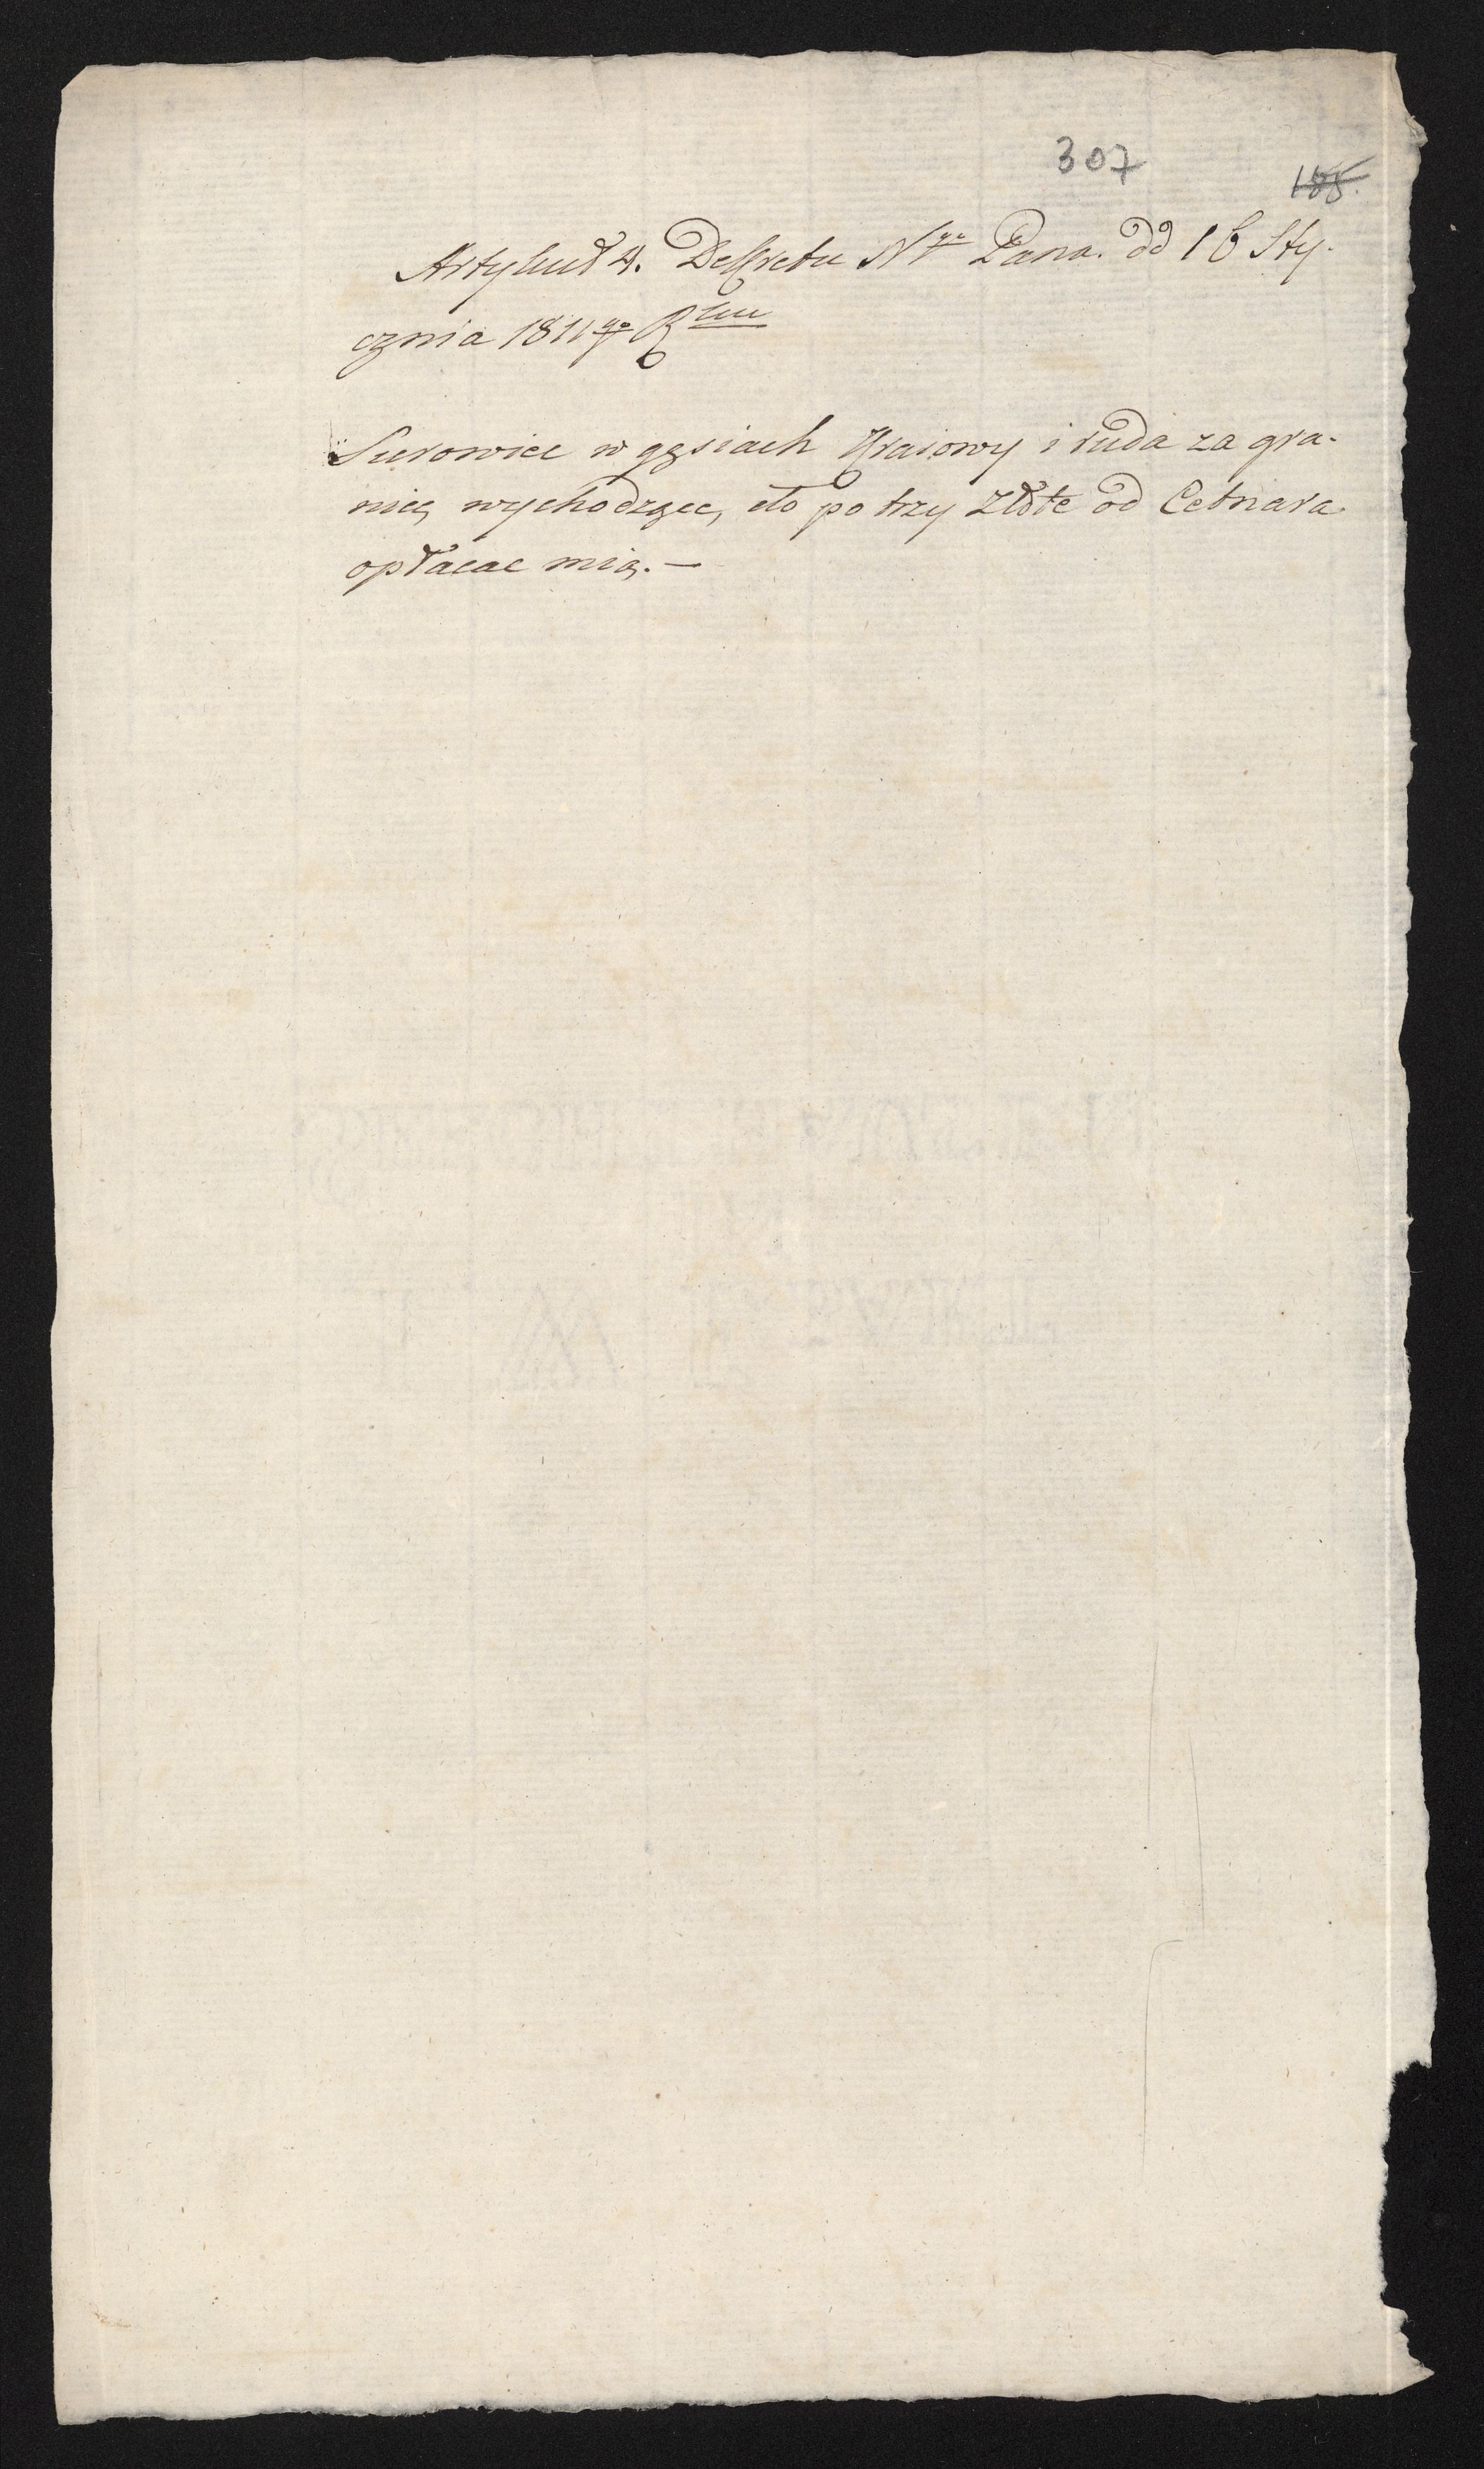 307
155.
Artykuł 4. Dekretu Ngo Pana. dd 16 Sty-
cznia 1811go Rku
Surowiec w gęsiach Kraiowy i ruda za gra-
nicę wychodzące, cło po trzy złote od Cetnara
opłacac maią. —